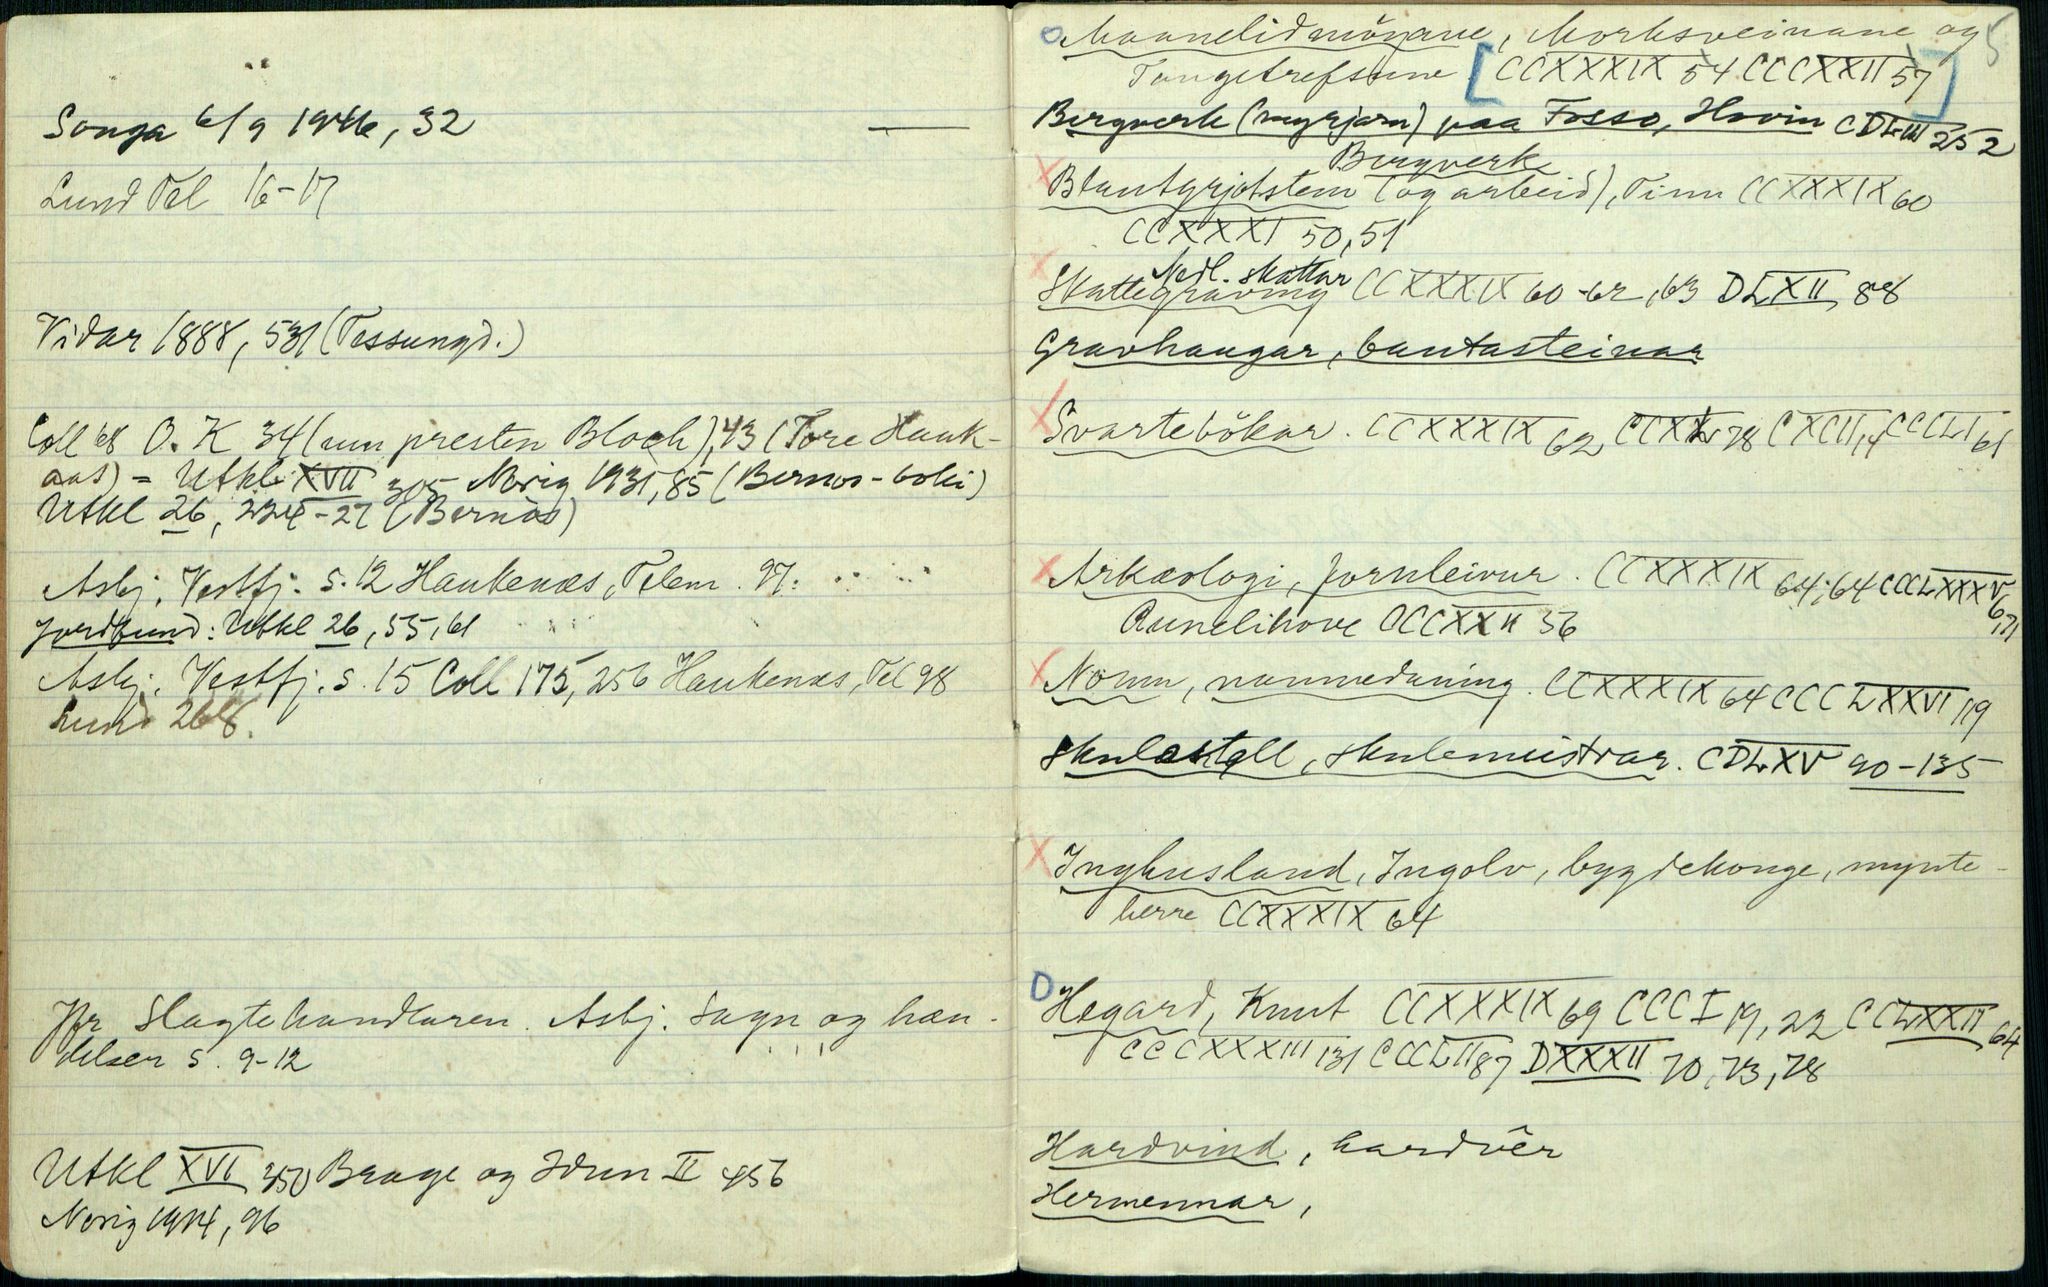 Songa 6/9 1946, 32
Lund Tel 16-17
Vidar 1888, 531 (Tessungd.)
Coll 68 O. K 34 (um presten Bloch), 43 (Tore Hauk-
aas) = Utkl XVII 305 Norig 1931, 85 (Bernos-boki)
Utkl 26, 224-27 (Bernos)
Asbj. Vestfj. s. 12 Haukenæs, Telem. 97.
Jordfund: Utkl 26, 55, 61
Asbj. Vestfj. s. 15 Coll 175, 256 Haukenæs, Tel 98
Lund 268.
Jfr Slagtehandlaren. Asbj. Sagn og hæn-
delser s. 9-12
Utkl XVI 350 Brage og Idun II 456
Norig 1914, 96
5
Maanelidmöyane, Morksveinane og
CCXXXIX 54 CCCXXII 57
Bergverk (myrjarn) paa Fosso, Hovin 252
Bergverk
Blautgrjotstein (og arbeid), Tinn CCXXXIX 60
CCXXXI 50, 51
Nedl. skattar
Skattegraving CCXXXIX 60-62, 63 DLXII, 88
Gravhaugar, bautasteinar
Svartebökar. CCXXXIX 62, 78 CXCII, 4 CCCLI 61
Arkæologi, fornleivur. CCXXXIX 64; 64 CCCLXXXV 6, 71
CCCXXII 56
Nomn, nanmedaning. CCXXXIX 64 CCCLXXVI 119
Skulestell, skulemeistrar. CDLXV 90-135
Inghusland, Ingolv, bygdekonge, mynte-
herre CCXXXIX 64
Hegard, Knut CCXXXIX 69 CCCI 19, 22 64
CCCXXXIII 131 CCCLII 87 DXXXII 70, 73, 78
Hardvind, hardvêr
Hermennar,